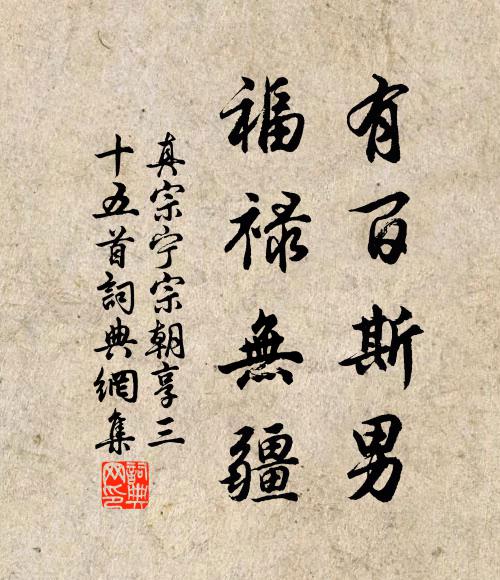 有百斯男
福禄無疆
真宗宁宗朝享三
十五首詞典網集
詞典
网印